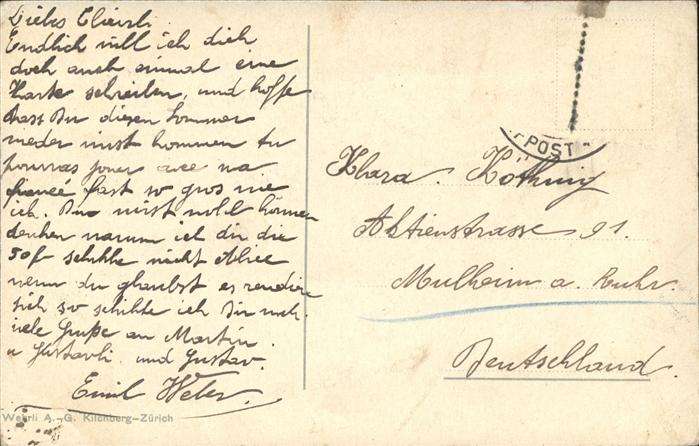 Liebes Clärli.
Endlich will ich dich
doch auch einmal eine
Karte schreiben, und hoffe
dass Du diesen Sommer
wieder wirst kommen tu
pourras jouer avec
fast so gros wie
ich. Du wirst wohl können
denken warum ich dir die
50f schikke nicht
wenn du glaubst es
sich so schikke ich Dir
viele Grüße an Martin.
u Gustavli. und Gustav.
Emil
Wehrli A.-G. Kilchberg-Zürich
POST
Klara. Kötting
Aktienstrasse 91.
Mülheim a. Ruhr.
Deutschland.